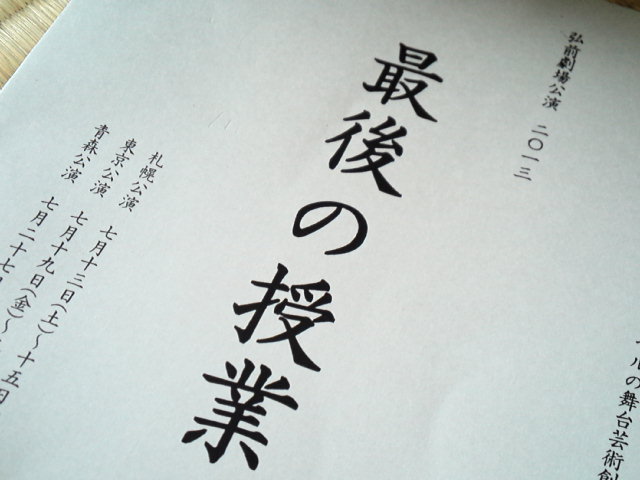 ルの舞台芸術創
弘前劇場公演　二〇一三
最後の授業
札幌公演　七月十三日(土)～十五日
東京公演　七月十九日(金)～
青森公演　七月二十七